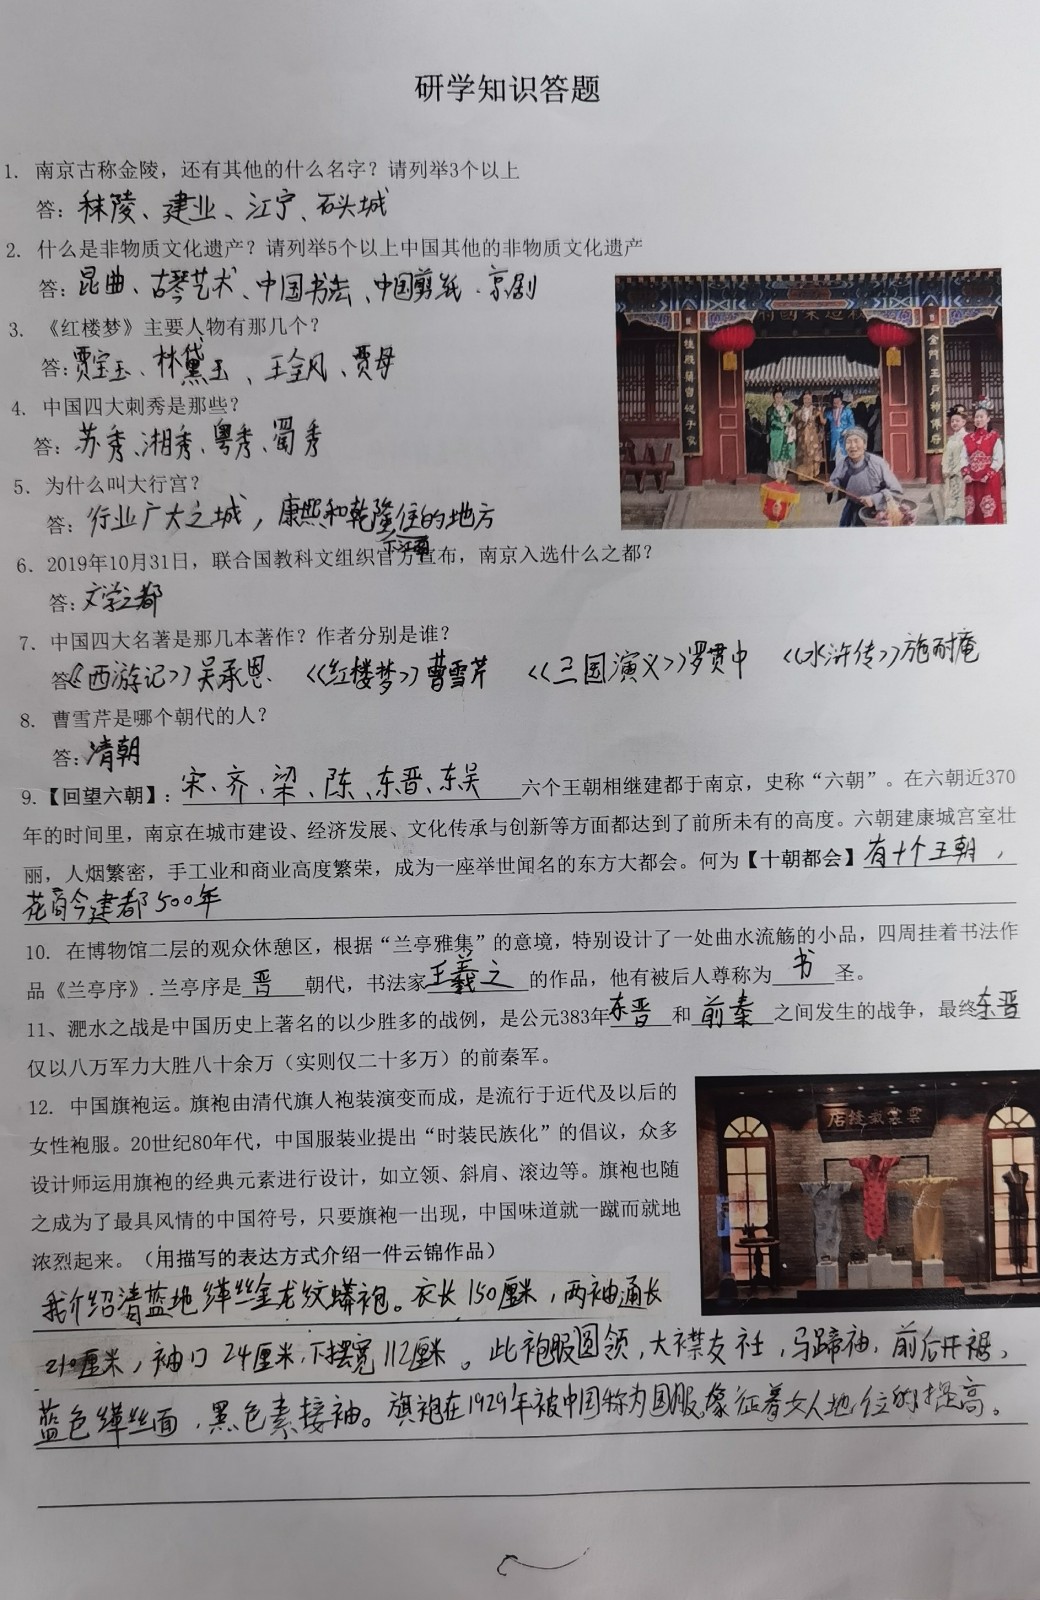 研学知识答题
1. 南京古称金陵，还有其他的什么名字？请列举3个以上
答：秣陵、建业、江宁、石头城
2. 什么是非物质文化遗产？请列举5个以上中国其他的非物质文化遗产
答：昆曲、古琴艺术、中国书法、中国剪纸、京剧
3. 《红楼梦》主要人物有那几个？
答：贾宝玉、林黛玉、王全凤、贾母
4. 中国四大刺秀是那些？
答：苏秀、湘秀、粤秀、蜀秀
5. 为什么叫大行宫？
答：行业广大之城，康熙和乾隆下江南住的地方
6. 2019年10月31日，联合国教科文组织官方宣布，南京入选什么之都？
答：文学之都
7. 中国四大名著是那几本著作？作者分别是谁？
答《西游记》吴承恩 《红楼梦》曹雪芹 《三国演义》罗贯中 《水浒传》施耐庵
8. 曹雪芹是哪个朝代的人？
答：清朝
9.【回望六朝】：宋、齐、梁、陈、东晋、东吴六个王朝相继建都于南京，史称“六朝”。在六朝近370
年的时间里，南京在城市建设、经济发展、文化传承与创新等方面都达到了前所未有的高度。六朝建康城宫室壮
丽，人烟繁密，手工业和商业高度繁荣，成为一座举世闻名的东方大都会。何为【十朝都会】有十个王朝，
今建都500年
10. 在博物馆二层的观众休憩区，根据“兰亭雅集”的意境，特别设计了一处曲水流觞的小品，四周挂着书法作
品《兰亭序》.兰亭序是晋朝代，书法家王羲之的作品，他有被后人尊称为书圣。
11、淝水之战是中国历史上著名的以少胜多的战例，是公元383年东晋和前秦之间发生的战争，最终东晋
仅以八万军力大胜八十余万（实则仅二十多万）的前秦军。
12. 中国旗袍运。旗袍由清代旗人袍装演变而成，是流行于近代及以后的
女性袍服。20世纪80年代，中国服装业提出“时装民族化”的倡议，众多
设计师运用旗袍的经典元素进行设计，如立领、斜肩、滚边等。旗袍也随
之成为了最具风情的中国符号，只要旗袍一出现，中国味道就一蹴而就地
浓烈起来。（用描写的表达方式介绍一件云锦作品）
我介绍清蓝地缂丝金龙纹蟒袍。衣长150厘米，两袖通长
210厘米，袖口24厘米，下摆宽112厘米。此袍服圆领，大襟友衽，马蹄袖，前后开裾，
蓝色缂丝面，黑色素接袖。旗袍在1929年被中国称为国服，像征着女人地位的提高。